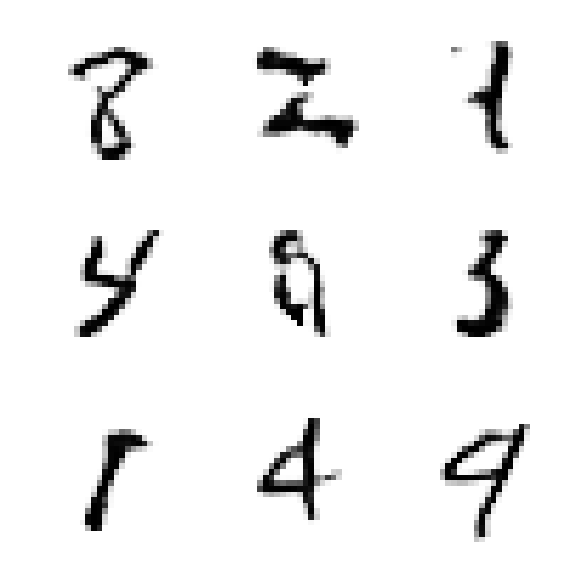 8 2 1
4 3
1 4 9